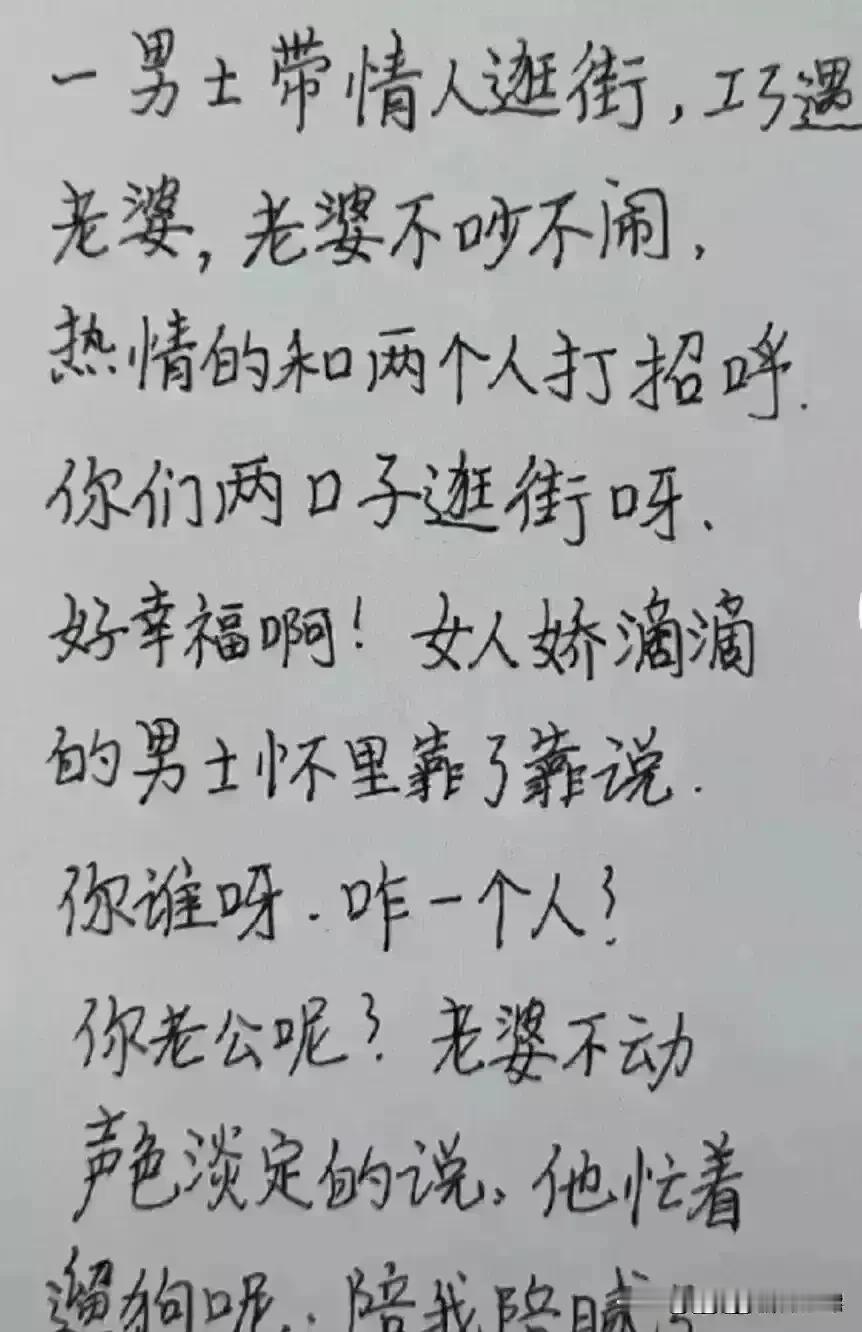 一男士带情人逛街,巧遇
老婆,老婆不吵不闹,
热情的和两个人打招呼.
你们两口子逛街呀、
好幸福啊!女人娇滴滴
的男士怀里靠了靠说.
你谁呀.咋一个人?
你老公呢?老婆不动
声色淡定的说、他忙着
遛狗呢..陪我